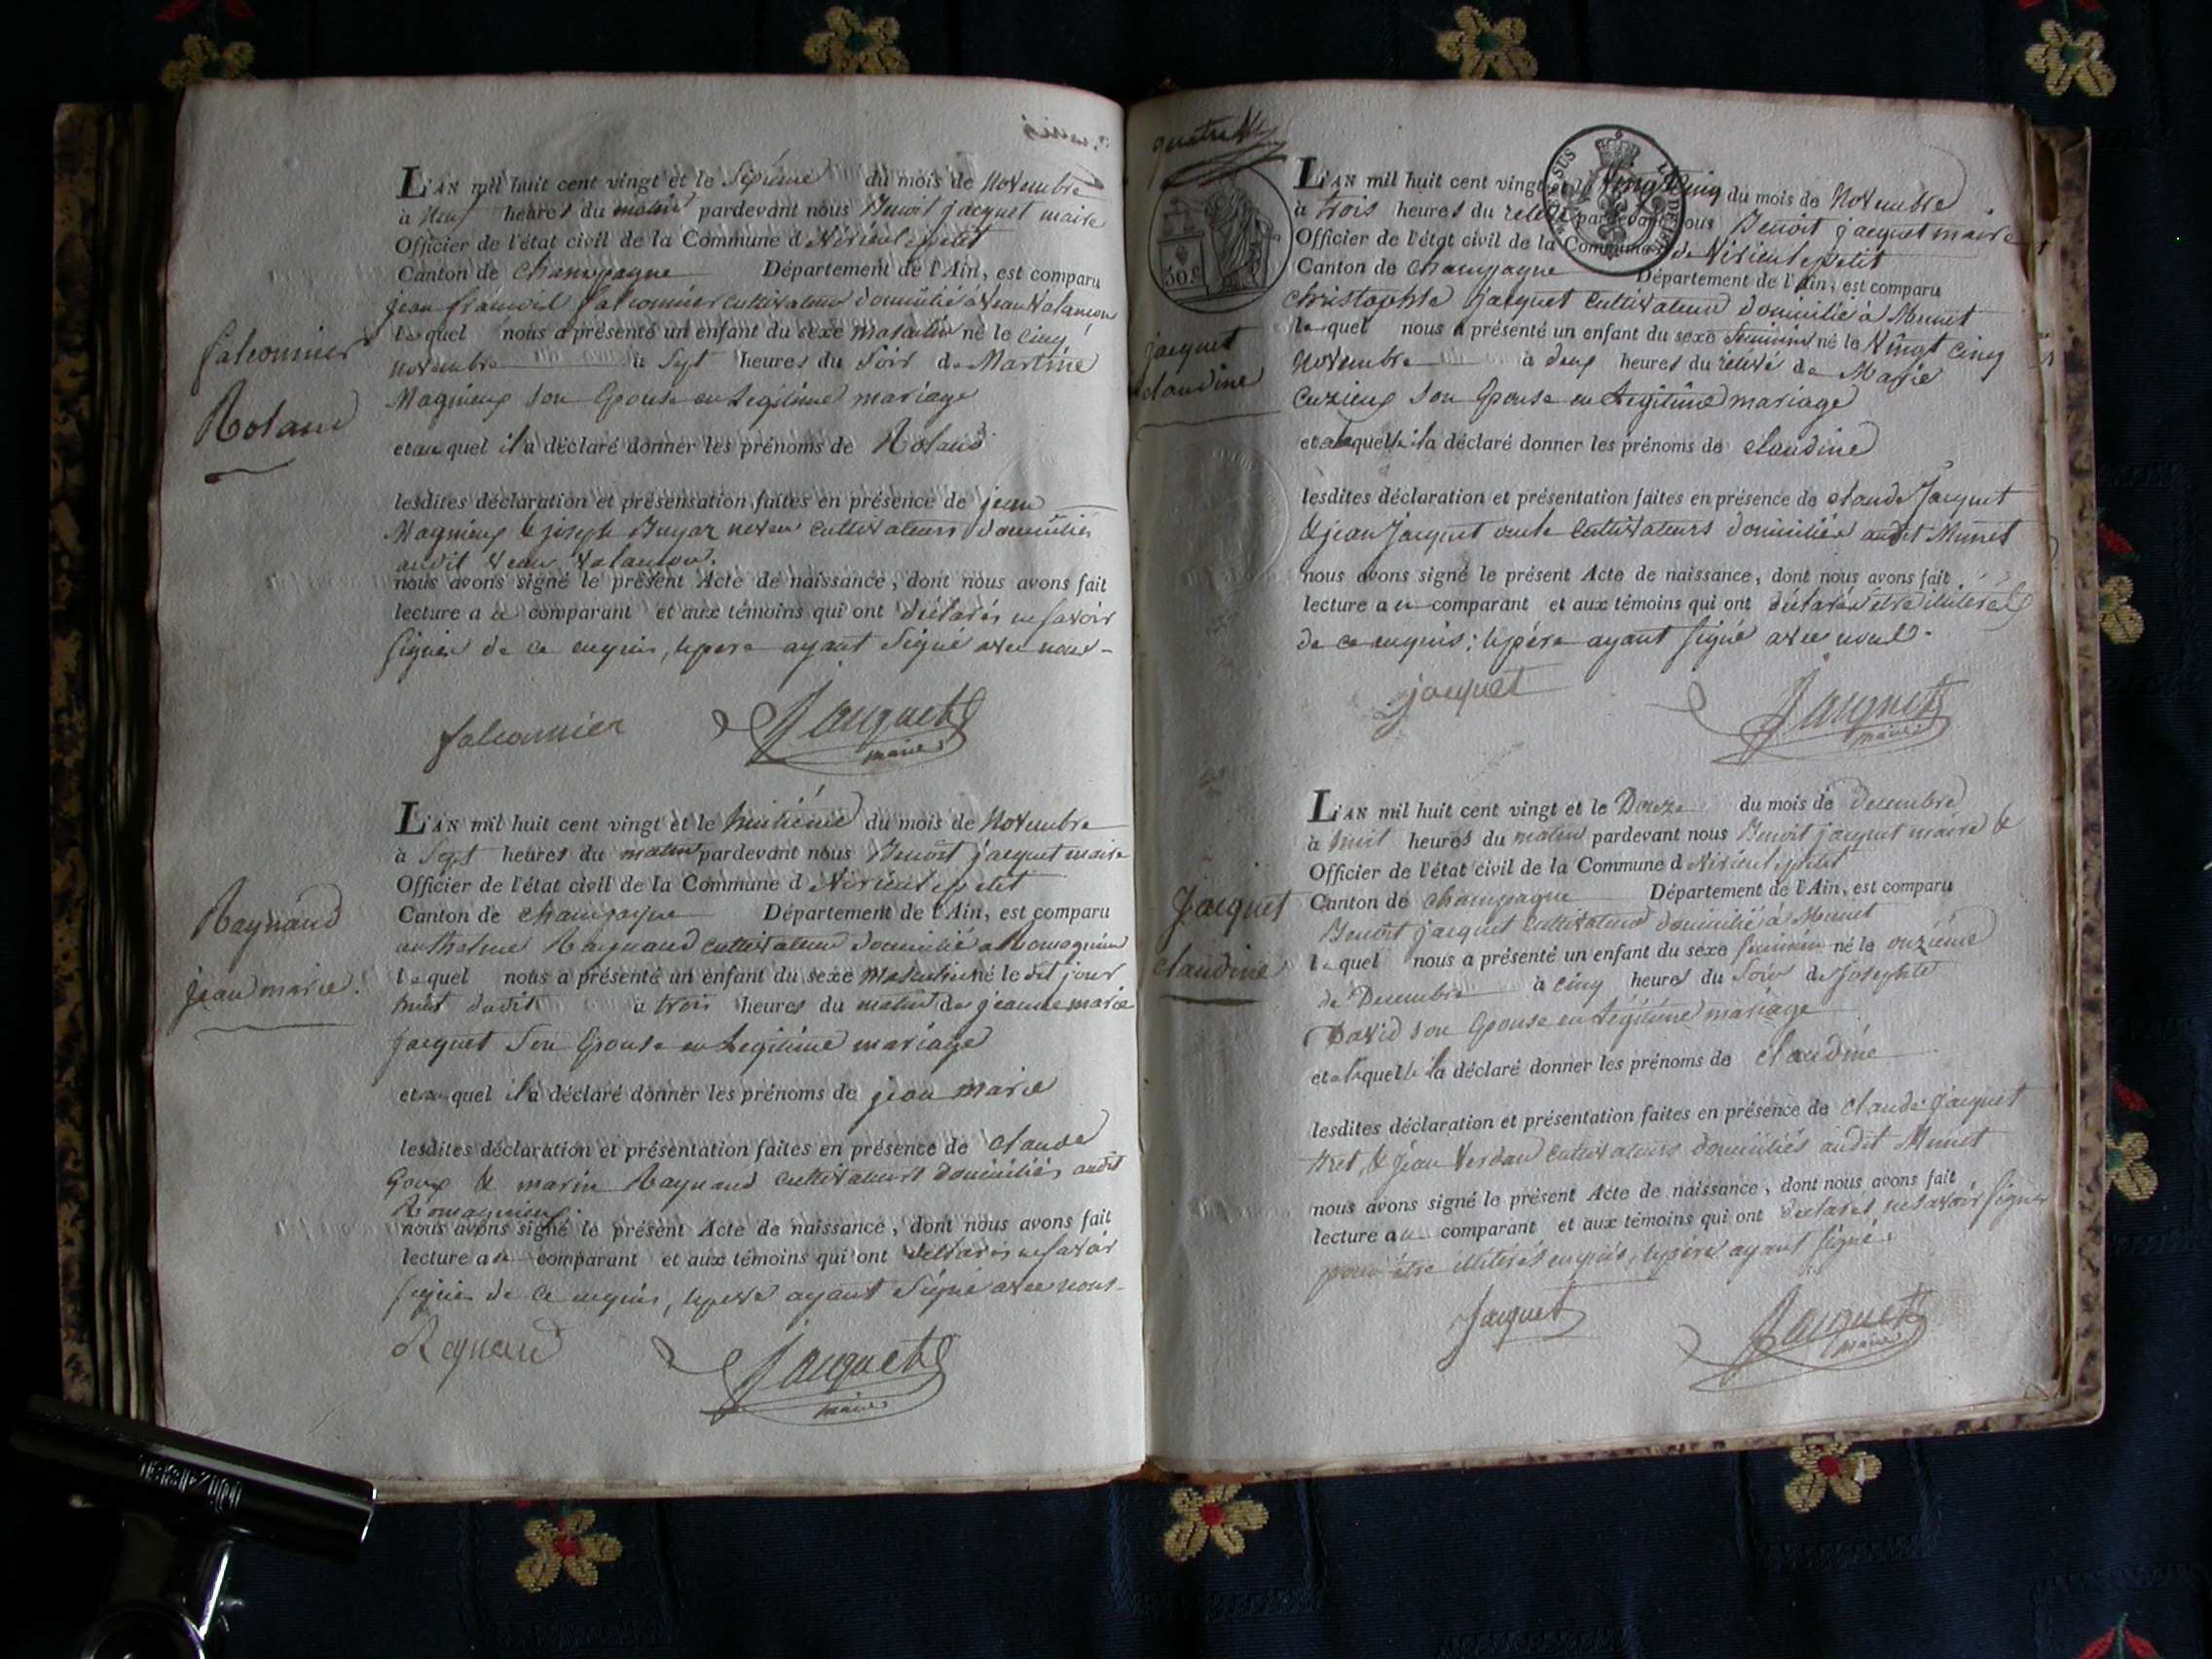 L'AN mil huit cent vingt et le Septieme du mois de Novembre
à Neuf heures du matin pardevant nous Benoit jacquet maire
Officier de l'état civil de la Commune d Virieu le petit
Canton de Champagne Département de l'Ain, est comparu
jean francois falconnier cultivateur domicilié à
lequel nous a présenté un enfant du sexe masculin né le cinq
novembre à Sept heures du Soir de Martine
Magnieux son Epouse en Legitime mariage
et au quel il a déclaré donner les prénoms de Roland
lesdites déclaration et présensation faites en présence de jean
Magnieux & joseph cultivateurs domiciliés
audit
nous avons signé le présent Acte de naissance, dont nous avons fait
lecture a ce comparant et aux témoins qui ont déclarés ne savoir
signer de ce enquis, le pere ayant signé avec nous
falconnier
Roland
falconnier Jacquet
maire
L'AN mil huit cent vingt et le huitiéme du mois de Novembre
à Sept heures du matin pardevant nous Benoit jacquet maire
Officier de l'état civil de la Commune d Virieu le petit
Canton de Champagne Département de l'Ain, est comparu
anthelme Raynaud cultivateur domicilié a Romagnieu
lequel nous a présenté un enfant du sexe Masculin né le dit jour
huit dudit à trois heures du matin de jeanne marie
jacquet Son Epouse en Legitime mariage
et au quel il a déclaré donner les prénoms de jean marie
lesdites déclaration et présentation faites en présence de Claude
Goux & marin Raynaud cultivateurs domiciliés audit
Romagnieu.
nous avons signé le présent Acte de naissance, dont nous avons fait
lecture a ce comparant et aux témoins qui ont déclarés ne savoir
signer de ce enquis, le pere ayant signé avec nous
Raynaud
jean marie
Jacquet
maire
quatre
30 c
L'AN mil huit cent vingt et le Vingt Cinq du mois de Novembre
à trois heures du relevé pardevant nous Benoit jacquet maire
Officier de l'état civil de la Commune de Virieu le petit
Canton de Champagne Département de l'Ain, est comparu
christophle jacquet cultivateur domicilié à Munet
lequel nous a présenté un enfant du sexe féminin né le Vingt cinq
Novembre à deux heures du relevé de Marie
Cuzieux son Epouse en Legitime mariage
et a laquelle il a déclaré donner les prénoms de claudine
lesdites déclaration et présentation faites en présence de claude Jacquet
& jean Jacquet oncle cultivateurs domiciliés audit Munet
nous avons signé le présent Acte de naissance, dont nous avons fait
lecture a ce comparant et aux témoins qui ont déclarés etre
de ce enquis; le pére ayant signé avec nous.
jacquet
claudine
jacquet Jacquet
maire
L'AN mil huit cent vingt et le Douze du mois de Decembre
à huit heures du matin pardevant nous Benoit jacquet maire &
Officier de l'état civil de la Commune d Virieu le petit
Canton de Champagne Département de l'Ain, est comparu
Benoit jacquet cultivateur domicilié à Munet
lequel nous a présenté un enfant du sexe féminin né le onziéme
de Decembre à cinq heures du Soir de Josephte
David son Epouse en Légitime mariage
et a laquelle il a déclaré donner les prénoms de claudine
lesdites déclaration et présentation faites en présence de Claude Jacquet
& Jean Verdan cultivateurs domiciliés audit Munet
nous avons signé le présent Acte de naissance, dont nous avons fait
lecture a ce comparant et aux témoins qui ont déclarés ne savoir signer
pour être enquis, le pére ayant signé.
Jacquet
claudine
Jacquet Jacquet
maire